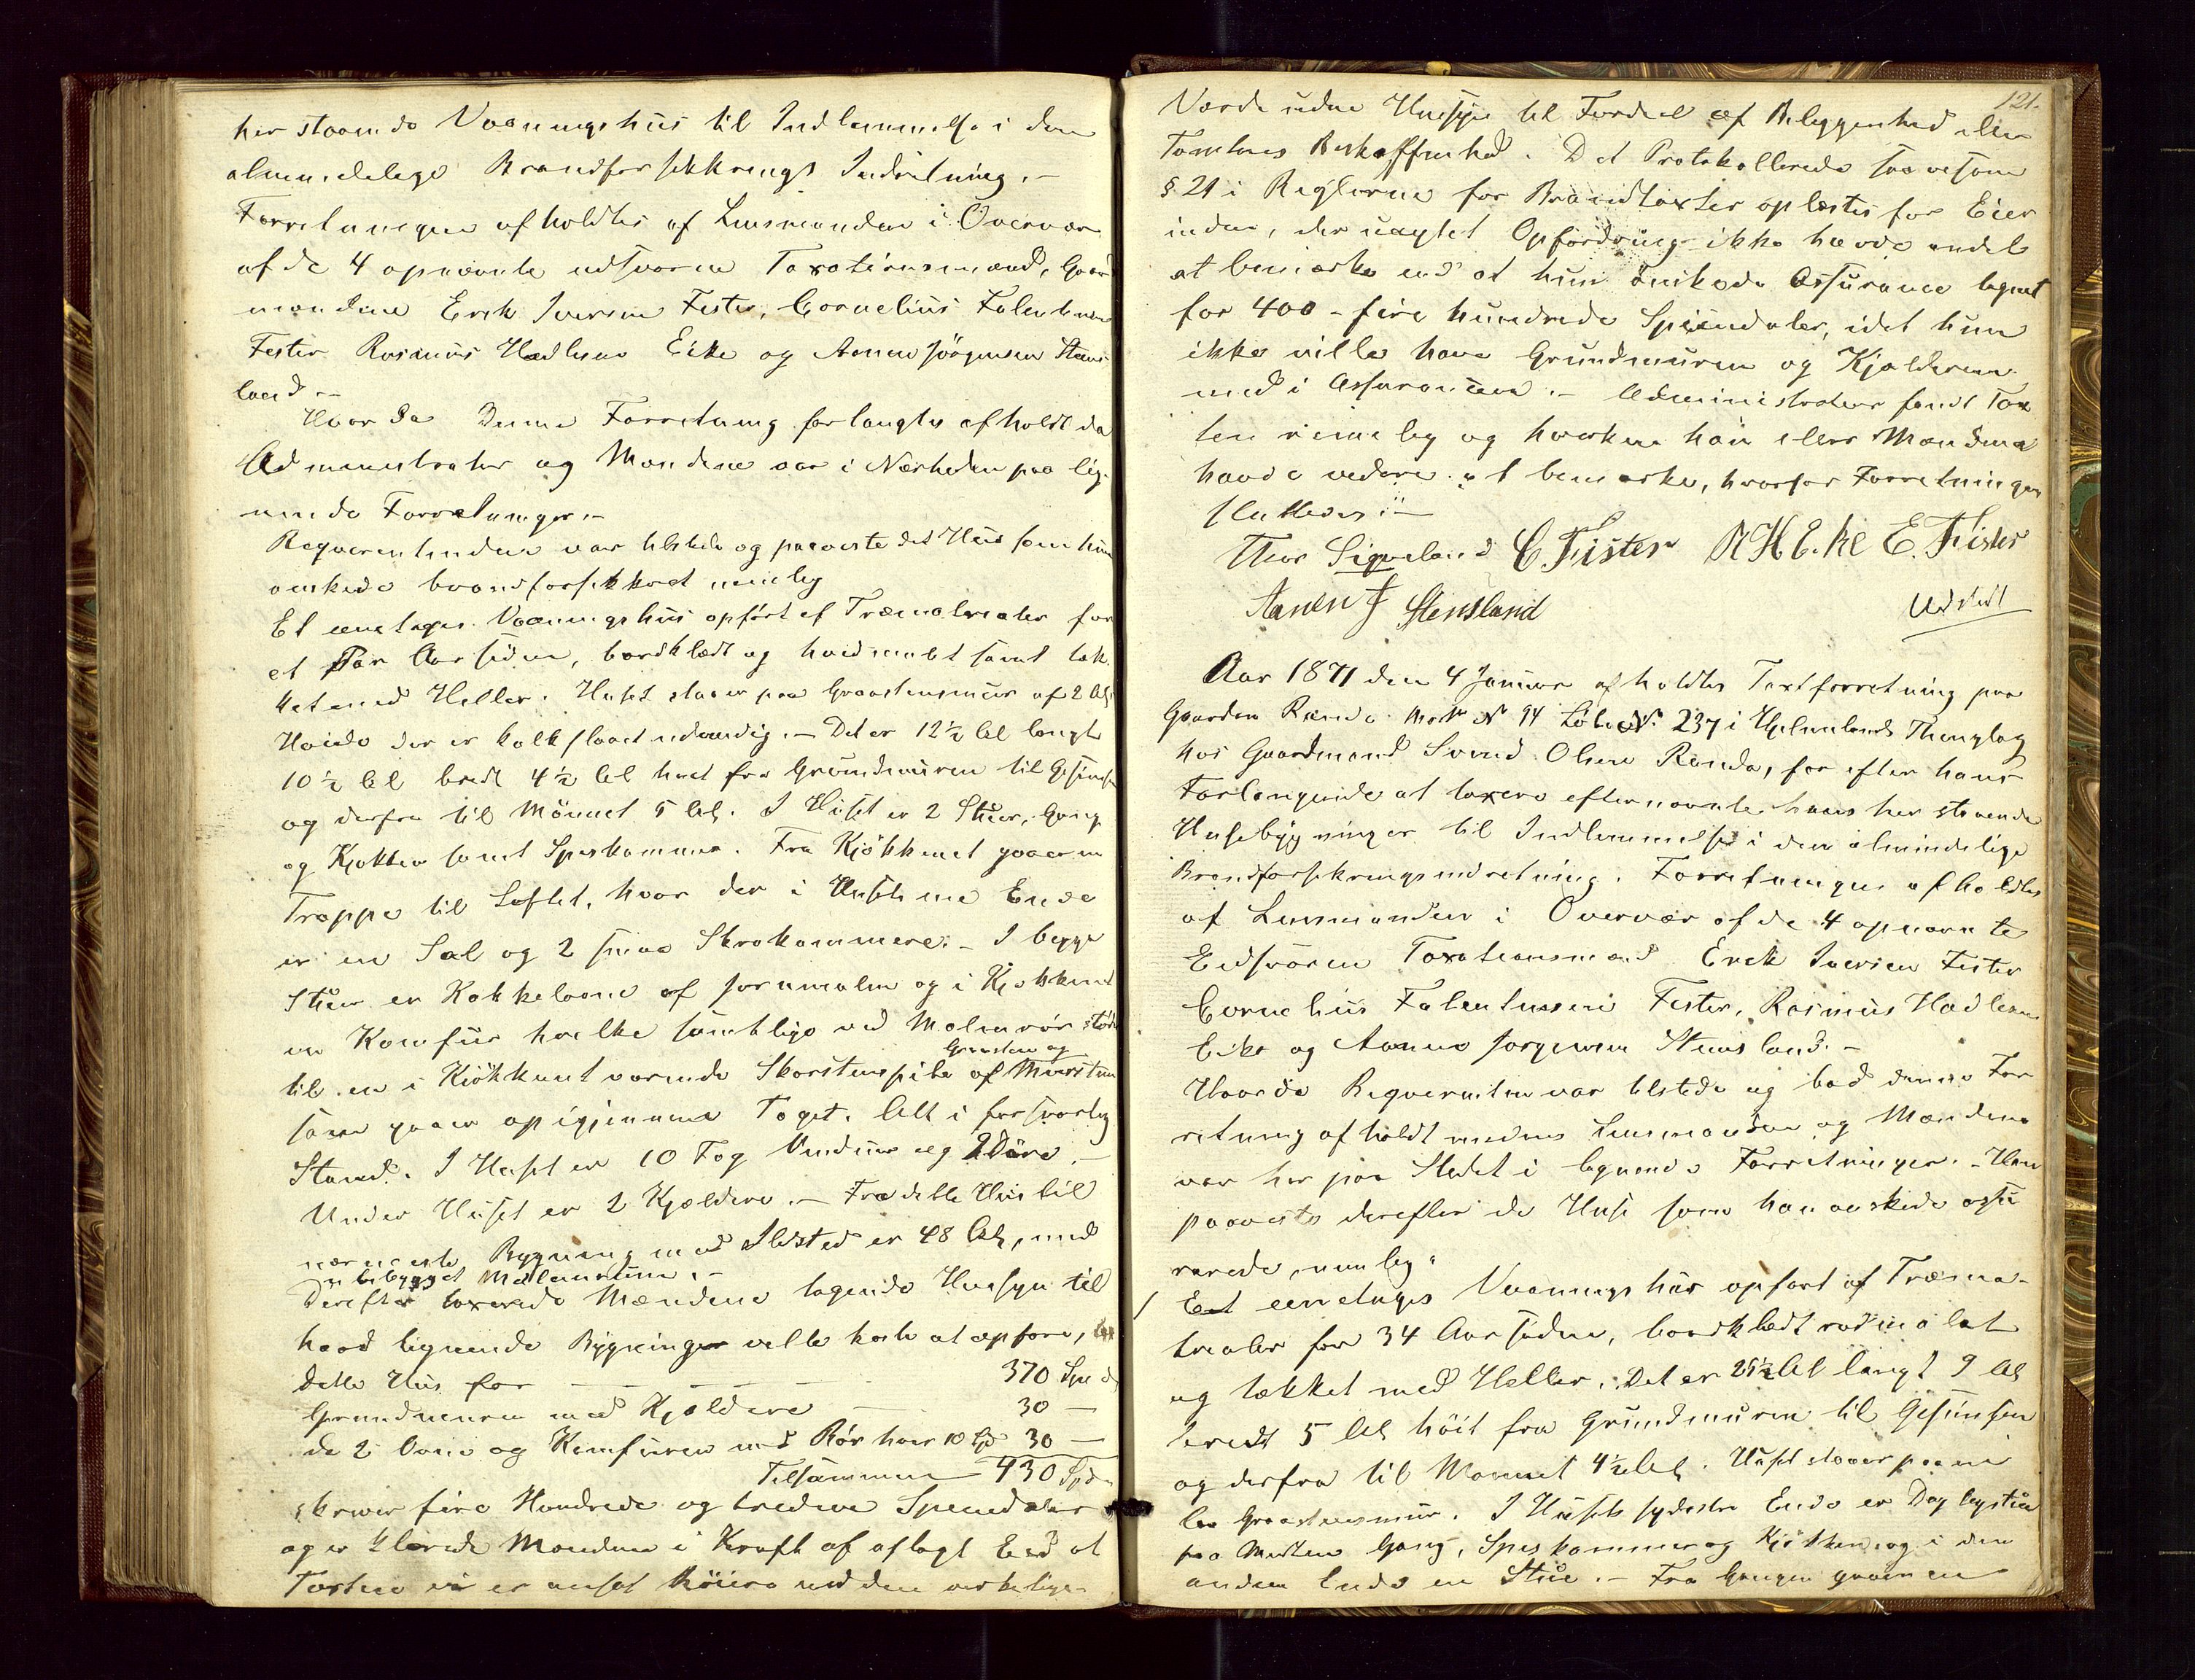 her staaende Vaaningshus til Indlemmelse i den
almindelige Brandforsikkrings Indretning.-
Forretningen afholdtes af Lensmanden i Overvær
af de 4 opnævnte edsvorne Taxationsmænd, Gaard
mændene Erik Iversen Fister, Cornelius Falentinsen
Fister Rasmus Hadlesen Eike og Aanen Jörgensen Stens
land.-
Hvorda Denne Forretning forlangtes afholdt da
Administrator og Mændene var i Nærheden paa lig-
nende Forretninger.-
Reqverentinden var tilstede og paaviste det Huus som hun
önskede brandforsikkret nemlig
Et eenetages Vaaningshus opfört af Træmaterialer for
et Par Aar siden, bordklædt og hvidmalet samt tæk-
ket med Heller. Huset staaer paa Graastensmuur af 2 Al
Höide der er kalkslaaet udvendig.- Det er 12½ Al langt
10½ Al bredt 4½ Al höit fra Grundmuren til Gesimsen
og derfra til Mönnet 5 Al. I Huset er 2 Stuer, Gang
og Kjökken samt Speskammer. Fra Kjökkenet gaaer en
Trappe til Loftet, hvor der i Husets ene Ende
er en Sal og 2 smaa Skrakammere.- I begge
Stuer er Kakkelovne af Jernmalm og i Kjökkenet
en Komfur hvilke samtlige ved Malmrör stöder
til en i Kjökkenet værende Skorstenspibe af Graasten og Muursten
som gaaer op igjennem Taget. Alt i forsvarlig
Stand. I Huset er 10 Fag Vinduer og 2 Döre.-
Under Huset er 2 Kjældere.- Fra dette Huus til
nærmeste Bygning med Ildsted er 48 Al, med
ubebygget Mellemrum.-
Derefter taxerede Mændene tagende Hensyn til
hvad lignende Bygninger ville koste at opföre,
dette Huus for 370 Spd
Grundmuren med Kjældere 30 -
de 2 Ovne og Komfuren med Rör hver 10 Spd 30 -
Tilsammen 430 Spd
skriver fire Hundrede og tredive Speciedaler
og erklærede Mændene i Kraft af aflagt Eed at
Taxten ei er ansat höiere end den virkelige
121.
Værdi uden Hensyn til Fordeel af Beliggenhed eller
Tomtens Beskaffenhed. Det Protokollerede saavelsom
§ 21 i Reglerne for Brandtaxter oplæstes for Eier
inden, der uagtet Opfordring ikke havde andet
at bemærke end at hun önskede Assurance tegnet
for 400 - fire hundrede Speciedaler, idet hun
ikke ville have Grundmuren og Kjælderen
med i Assurancen.- Administrator fandt Tax
ten rimelig og hverken han eller Mændene
havde videre at bemærke, hvorfor Forretningen
sluttedes:-
Thor Sigveland C Fister R H Eike E. Fister
Aanen J Stensland
Udstedt
Aar 1871 den 4 Januar afholdtes Taxtforretning paa
Gaarden Rande Matr No 94 Löbe No 237 i Hjelmelands Thinglag
hos Gaardmand Svend Olsen Rande, for efter hans
Forlangende at taxere efternævnte hans her staaende
Husebygninger til Indlemmelse i den almindelige
Brandforsikringsindretning. Forretningen afholdtes
af Lensmanden i Overvær af de 4 opnævnte
Eedsvorne Taxationsmænd Erik Iversen Fister
Cornelius Falentinsen Fister, Rasmus Hadlesen
Eike og Aanen Jörgensen Stensland.-
Hvorda Reqverenten var tilstede og bad denne For
retning afholdt medens Lensmanden og Mændene
var her paa Stedet i lignende Forretninger.- Han
paaviste derefter de Huse som han önskede assu
rerede, nemlig:
1 Et eenetages Vaaningshus opfört af Træma-
terialer for 34 Aar siden, bordklædt rödmalet
og tækket med Heller. Det er 25½ Al langt 9 Al
bredt 5 Al höit fra Grundmuren til Gesimsen
og derfra til Mönnet 4½ Al. Huset staaer paa en
lav Graastensmuur. I Husets sydöstre Ende er Daglegstue
paa Midten Gang, Speskammer og Kjökken og i den
anden Ende en Stue.- Fra Gangen gaaer en